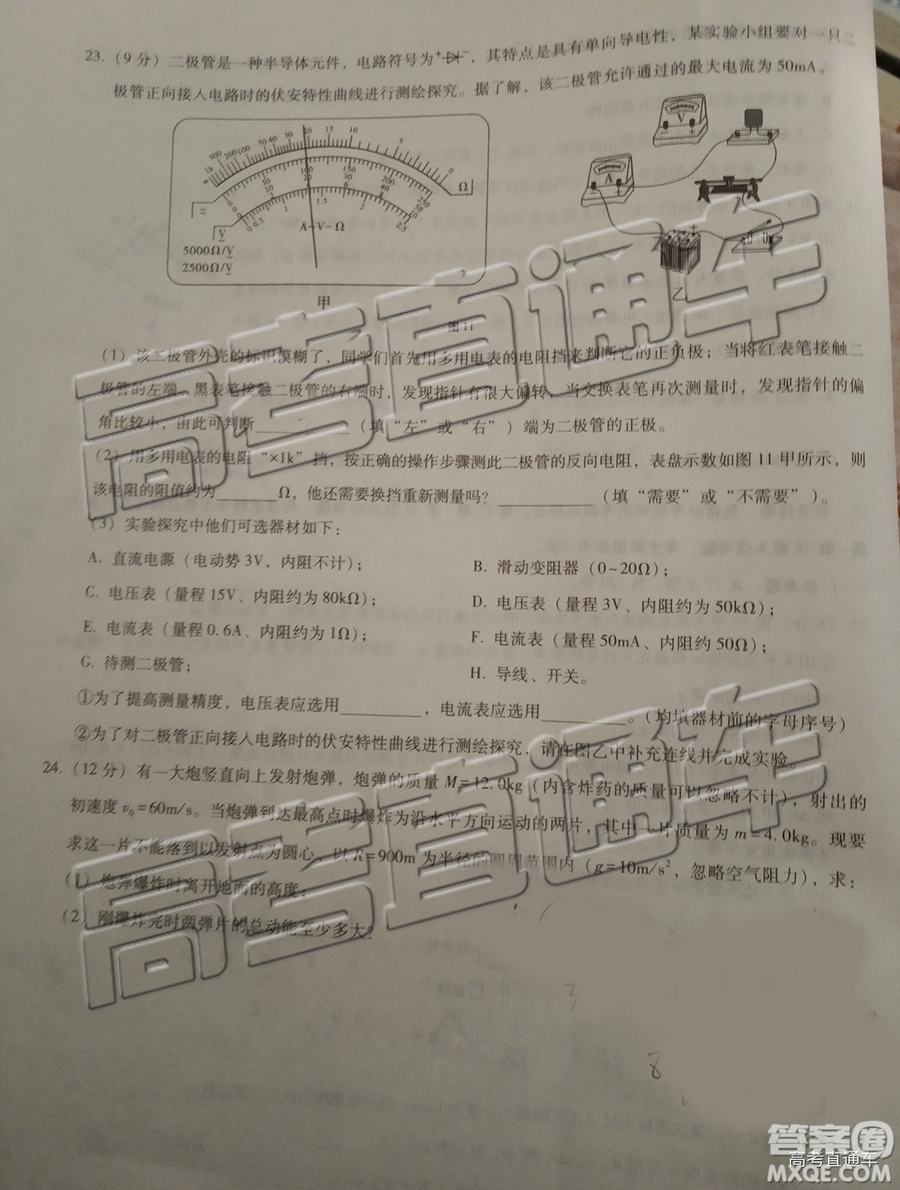 23.（9分）二极管是一种半导体元件，电路符号为 ，其特点是具有单向导电性，某实验小组要对一只
极管正向接入电路时的伏安特性曲线进行测绘探究。据了解，该二极管允许通过的最大电流为50mA。
∞ 500 100 50 40 30 20 15 10 5 0 Ω
0 50 100 150 200 250
0 10 20 30 40 50
0 0.5 1 1.5 2 2.5
A-V-Ω
5000Ω/V
2500Ω/V
V
A
甲
乙
图11
（1）该二极管外壳的标识模糊了，同学们首先用多用电表的电阻挡来判断它的正负极；当将红表笔接触二
极管的左端、黑表笔接触二极管的右端时，发现指针有很大偏转，当交换表笔再次测量时，发现指针的偏
角比较小，由此可判断________（填“左”或“右”）端为二极管的正极。
（2）用多用电表的电阻“×1k”挡，按正确的操作步骤测此二极管的反向电阻，表盘示数如图11甲所示，则
该电阻的阻值约为________Ω，他还需要换挡重新测量吗？________（填“需要”或“不需要”）。
（3）实验探究中他们可选器材如下：
A. 直流电源（电动势3V，内阻不计）；
B. 滑动变阻器（0~20Ω）；
C. 电压表（量程15V、内阻约为80kΩ）；
D. 电压表（量程3V、内阻约为50kΩ）；
E. 电流表（量程0.6A、内阻约为1Ω）；
F. 电流表（量程50mA、内阻约50Ω）；
G. 待测二极管；
H. 导线、开关。
①为了提高测量精度，电压表应选用________，电流表应选用________。（均填器材前的字母序号）
②为了对二极管正向接入电路时的伏安特性曲线进行测绘探究，请在图乙中补充连线并完成实验。
24.（12分）有一大炮竖直向上发射炮弹，炮弹的质量M=12.0kg（内含炸药的质量可以忽略不计），射出的
初速度v₀=60m/s。当炮弹到达最高点时爆炸为沿水平方向运动的两片，其中一片质量为m=4.0kg。现要
求这一片不能落到以发射点为圆心、以R=900m为半径的圆周范围内（g=10m/s²，忽略空气阻力），求：
（1）炮弹爆炸时离开地面的高度；
（2）刚爆炸完时两弹片的总动能至少多大？
高考直通车
高考直通车
3
8
答案圈
高考直通车
MXQE.COM